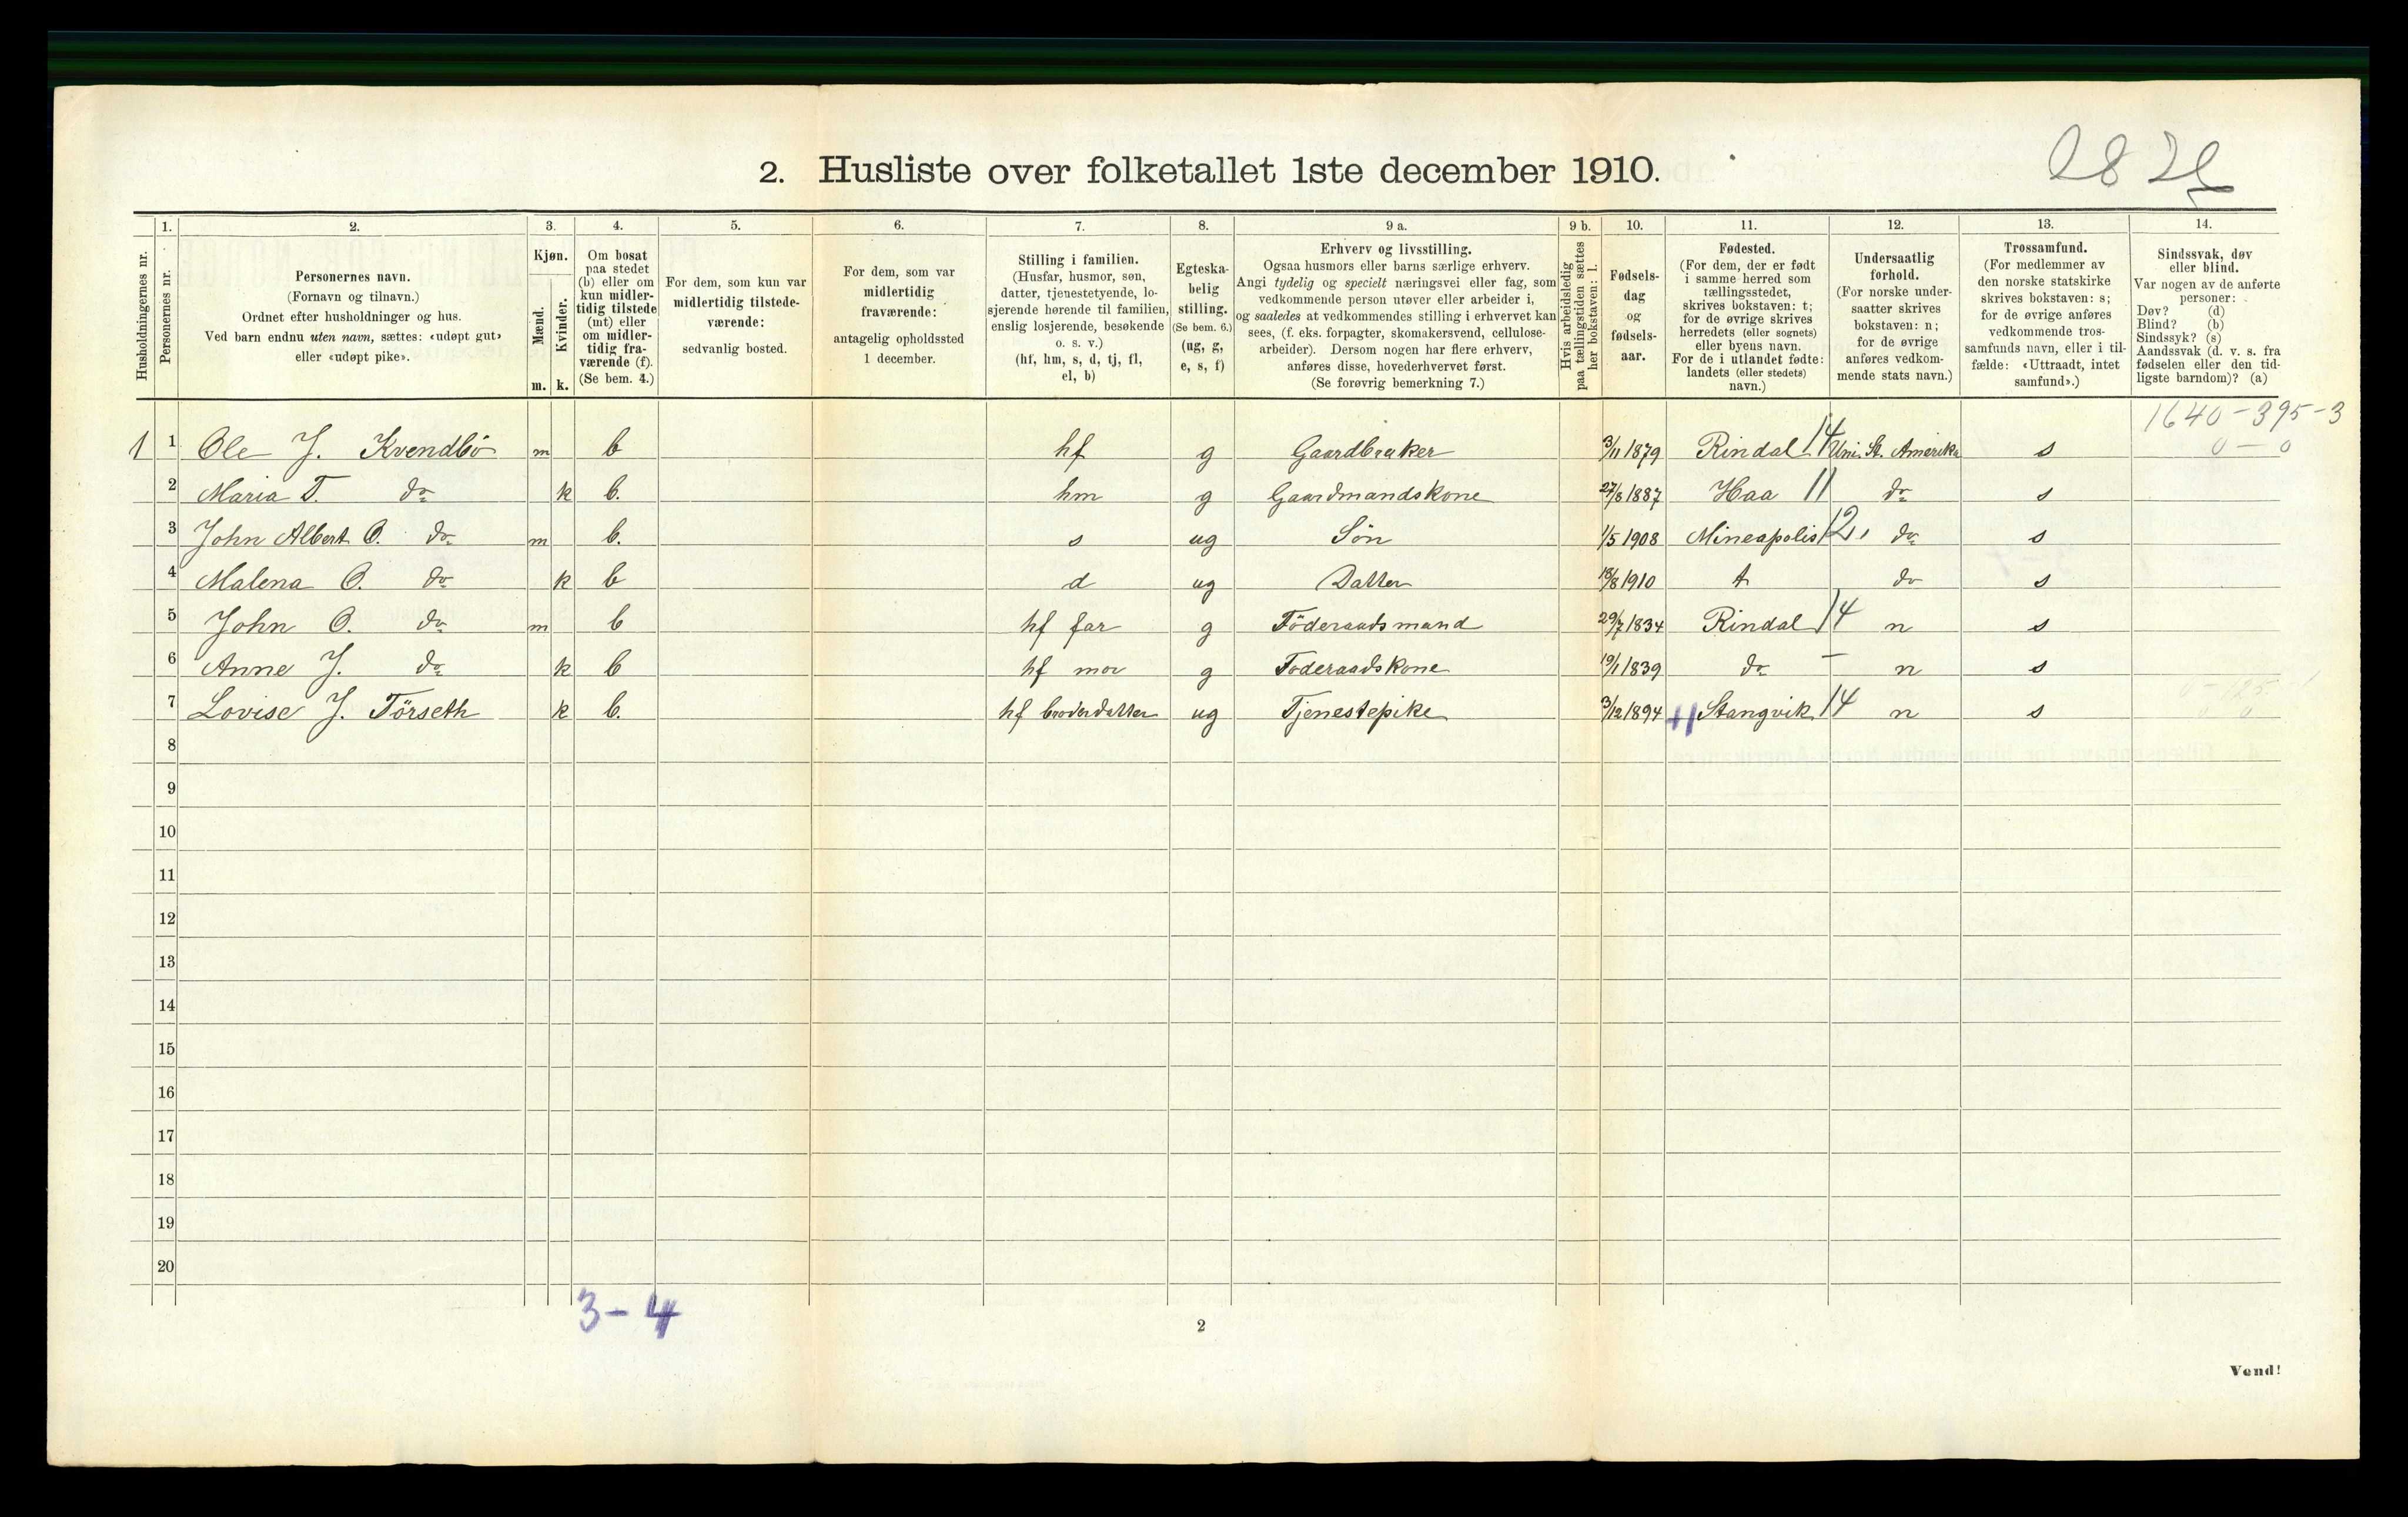 2. Husliste over folketallet 1ste december 1910.
Husholdningernes nr.
1. Personernes nr.
2. Personernes navn.
(Fornavn og tilnavn.)
Ordnet efter husholdninger og hus.
Ved barn endnu uten navn, sættes: «udøpt gut»
eller «udøpt pike».
3. Kjøn.
Mænd. m.
Kvinder. k.
4. Om bosat
paa stedet
(b) eller om
kun midler-
tidig tilstede
(mt) eller
om midler-
tidig fra-
værende (f).
(Se bem. 4.)
5. For dem, som kun var
midlertidig tilstede-
værende:
sedvanlig bosted.
6. For dem, som var
midlertidig
fraværende:
antagelig opholdssted
1 december.
7. Stilling i familien.
(Husfar, husmor, søn,
datter, tjenestetyende, lo-
sjerende hørende til familien,
enslig losjerende, besøkende
o. s. v.)
(hf, hm, s, d, tj, fl,
el, b)
8. Egteska-
belig
stilling.
(Se bem. 6.)
(ug, g,
e, s, f)
9 a. Erhverv og livsstilling.
Ogsaa husmors eller barns særlige erhverv.
Angi tydelig og specielt næringsvei eller fag, som
vedkommende person utøver eller arbeider i,
og saaledes at vedkommendes stilling i erhvervet kan
sees, (f. eks. forpagter, skomakersvend, cellulose-
arbeider). Dersom nogen har flere erhverv,
anføres disse, hovederhvervet først.
(Se forøvrig bemerkning 7.)
9 b. Hvis arbeidsledig
paa tællingstiden sættes
her bokstaven: l.
10. Fødsels-
dag
og
fødsels-
aar.
11. Fødested.
(For dem, der er født
i samme herred som
tællingsstedet,
skrives bokstaven: t;
for de øvrige skrives
herredets (eller sognets)
eller byens navn.
For de i utlandet fødte:
landets (eller stedets)
navn.)
12. Undersaatlig
forhold.
(For norske under-
saatter skrives
bokstaven: n;
for de øvrige
anføres vedkom-
mende stats navn.)
13. Trossamfund.
(For medlemmer av
den norske statskirke
skrives bokstaven: s;
for de øvrige anføres
vedkommende tros-
samfunds navn, eller i til-
fælde: «Uttraadt, intet
samfund».)
14. Sindssvak, døv
eller blind.
Var nogen av de anførte
personer:
Døv? (d)
Blind? (b)
Sindssyk? (s)
Aandssvak (d. v. s. fra
fødselen eller den tid-
ligste barndom)? (a)
1640-395-3
1 1 Ole J. Kvendbø m b hf g Gaardbruker 3/11 1879 Rindal 14 Uni. St. Amerika s 0-0
2 Maria T. do k b. hm g Gaardmandskone 27/8 1887 Haa 11 do s
3 John Albert O. do m b. s ug Søn 1/5 1908 Mineapolis 12, do s
4 Malena O. do k b d ug Datter 18/8 1910 t do s
5 John O. do m b hf far g Föderaadsmand 29/7 1834 Rindal 14 n s
6 Anne J. do k b hf mor g Foderaadskone 19/1 1839 do - n s
7 Lovise J. Törseth k b. hf broderdatter ug Tjenestepike 3/12 1894 Stangvik 14 n s
8
9
10
11
12
13
14
15
16
17
18
19
20
3-4
2
Vend!